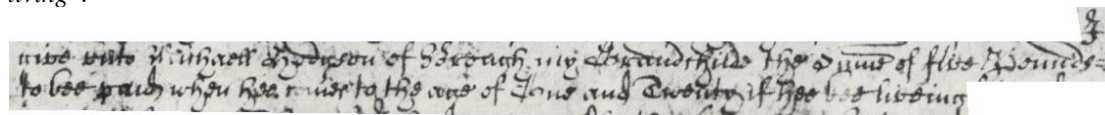 I
give unto Michaell Hodgson of my Grandchilde the Sume of five Pounds=
to bee paid when hee comes to the age of one and Twenty if hee bee liveing